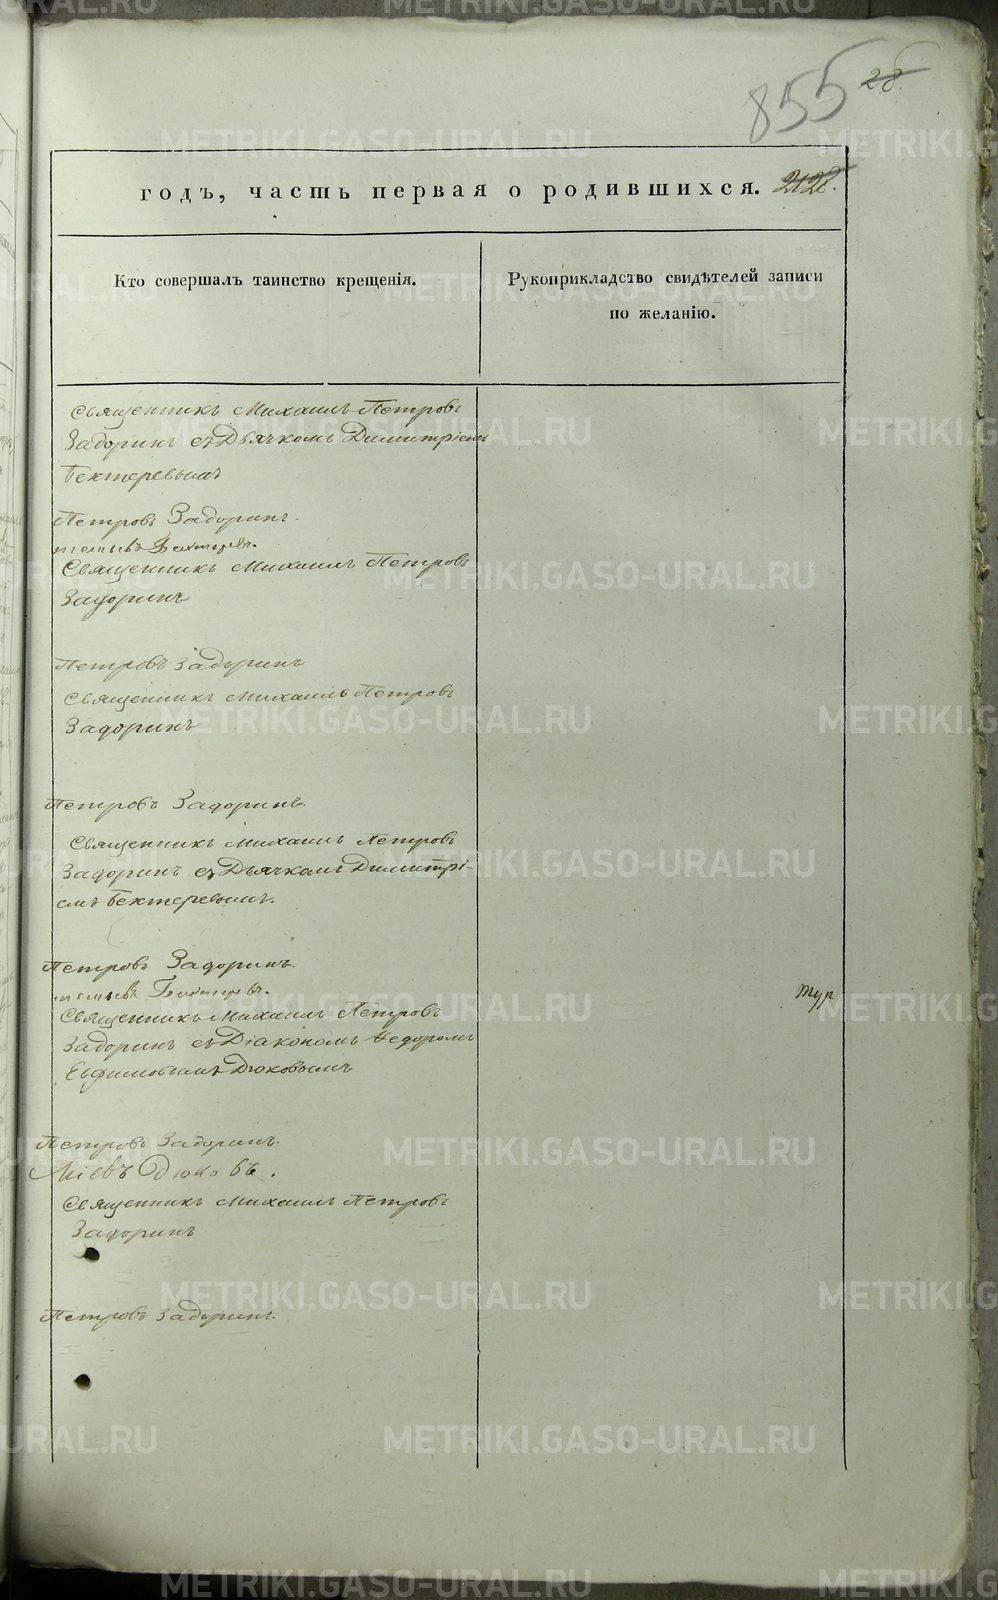 855 28.
годъ, часть первая о родившихся. 2128.
Кто совершалъ таинство крещенія.
Рукоприкладство свидѣтелей записи
по желанію.
Священникъ Михаилъ Петровъ
Задоринъ съ Дьячкомъ Димитріемъ
Бехтеревымъ
Петровъ Задоринъ.
Священникъ Михаилъ Петровъ
Задоринъ
Петровъ Задоринъ
Священникъ Михаилъ Петровъ
Задоринъ
Петровъ Задоринъ.
Священникъ Михаилъ Петровъ
Задоринъ съ Дьячкомъ Димитрі-
емъ Бехтеревымъ.
Петровъ Задоринъ.
Бехтеревъ.
Священникъ Михаилъ Петровъ
Задоринъ съ Діакономъ Ѳедоромъ
Евфимовымъ Дюковымъ
Петровъ Задоринъ.
Дюковъ.
Священникъ Михаилъ Петровъ
Задоринъ
Петровъ Задоринъ.
тур
METRIKI.GASO-URAL.RU